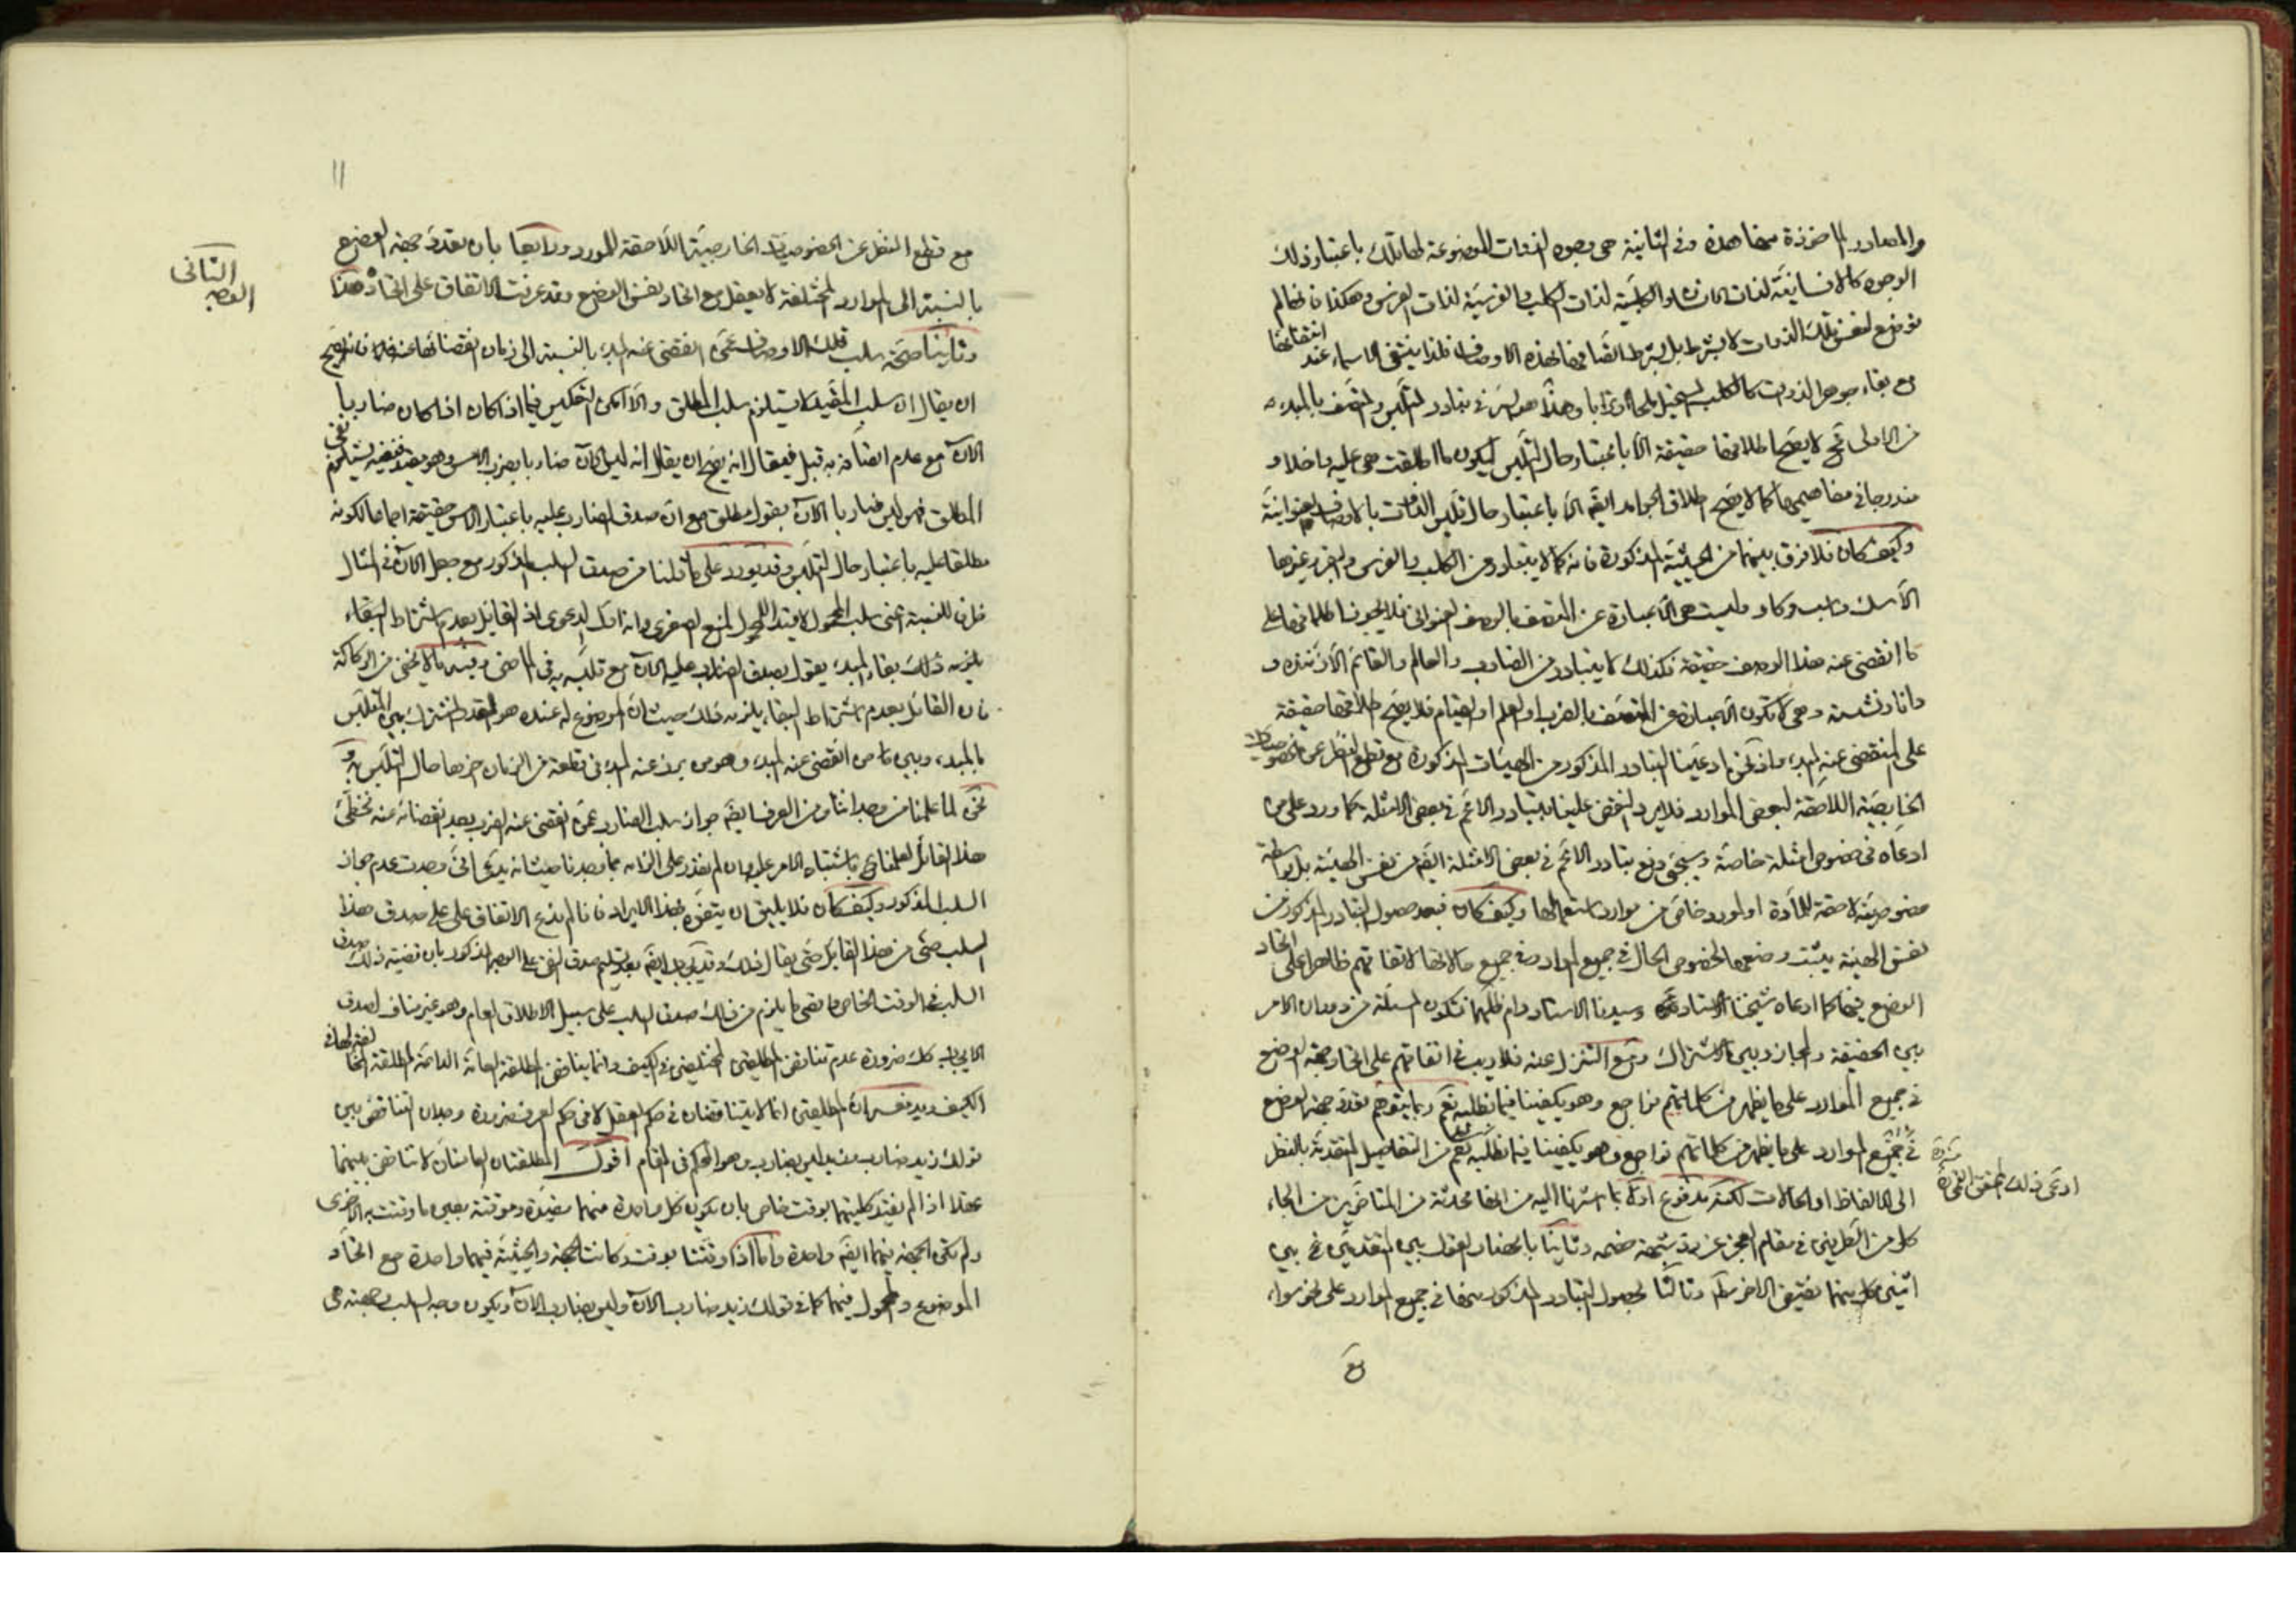 والمصادر المأخوذة منها هذه وفى الثانية هى وجوه الذوات الموضوعة لها تلك باعتبار ذلك
الوجوه كالانسانية لذات الانسان والكلبية لذات الكلب والفرسية لذات الفرس وهكذا فانها لم
توضع لنفس تلك الذوات لا بشرط بل بشرط اتصافها بهذه الاوصاف فلذا ينتفى الاسماء عند انتفائها
مع بقاء جوهر الذوات كالكلب المستحيل ملحا او ترابا وهذا هو السر فى تبادر المتلبس والمتصف بالمبدء
من الاولى فح لا يصح اطلاقها حقيقة الا باعتبار حال التلبس ليكون ما اطلقت هى عليه داخلا و
مندرجا فى مفاهيمها كما لا يصح اطلاق الجوامد ايضا الا باعتبار حال تلبس الذات بالاوصاف العنوانية
وكيف كان فلا فرق بينهما من الحيثية المذكورة فانه كما لا يتبادر من الكلب والفرس والبقر وغيرها
الا سك واسب وكاو وليست هى الا عبارة عن المتصف بالوصف العنوانى فلا يجوز اطلاقها على
ما انقضى عنه هذا الوصف حقيقة فكذلك لا يتبادر من الضارب والعالم والقائم الا زننده و
دانا ونشسته وهى لا تكون الا عبارة عن المتصف بالضرب او العلم او القيام فلا يصح اطلاقها حقيقة
على المنقضى عنه المبدء واذ نحن ادعينا التبادر المذكور من الهيئات المذكورة مع قطع النظر عن الخصوصيات
الخارجية اللاحقة لبعض الموارد فلا يرد النقض علينا بتبادر الاعم فى بعض الامثلة كما ورد على من
ادعاه فى خصوص امثلة خاصة وسيجئ دفع تبادر الاعم فى بعض الامثلة ايضا من نفس الهيئة بل بواسطة
خصوصية لاحقة للمادة او لمورد خاص من موارد استعمالها وكيف كان فبعد حصول التبادر المذكور من
نفس الهيئة يثبت وضعها لخصوص الحال فى جميع الموارد وفى جميع حالاتها لاتفاقهم ظاهرا على اتحاد
الوضع فيها كما ادعاه شيخنا الاستاد وسيدنا الاستاد دام ظلهما فتكون المسئلة من دوران الامر
بين الحقيقة والمجاز وبين الاشتراك ومع التنزل عنه فلا ريب فى اتفاقهم على اتحاد جهة الوضع
فى جميع الموارد على ما يظهر من كلماتهم فراجع وهو يكفينا فيما نطلبه نعم ربما يتوهم تعدد جهة الوضع
فى جميع الموارد على ما يظهر من كلماتهم فراجع وهو يكفينا فيما نطلبه نعم من التفاصيل المتقدمة بالنظر
الى الالفاظ او الحالات لكنه مدفوع اولا بما اشرنا اليه من انها محدثة من المتاخرين من الجاء
كل من الطرفين فى مقام العجز عن رد شبهة خصمه وثانيا بانحصار القول بين المتقدمين فى بين
اثنين كل منهما نقيض الاخر وثالثا بحصول التبادر المذكور منها فى جميع الموارد على نحو سواء
مع
ادعى ذلك المحقق القمى ره
١١
مع قطع النظر عن الخصوصيات الخارجية اللاحقة للمورد ورابعا بان تعدد جهة الوضع
بالنسبة الى الموارد المختلفة لا يعقل مع اتحاد نفس الوضع وقد عرفت الاتفاق على اتحاده هذا
وثانيا صحة سلب تلك الاوصاف عمن انقضى عنه المبدء بالنسبة الى زمان انقضائها عنه فلا يصح
ان يقال ان سلب المقيد لا يستلزم سلب المطلق والا امكن العكس فيما اذا كان اذا كان ضاربا
الان مع عدم اتصافه به قبل فيقال انه يصح ان يقال انه ليس الان ضاربا بضرب الامس وهو مقيد فنفيه يستلزم نفى
المطلق فهو ليس ضاربا الان بقول مطلق مع ان صدق الضارب عليه باعتبار الامس حقيقة اجماعا لكونه
مطلقا عليه باعتبار حال التلبس وقد يورد على ما قلنا من صدق السلب المذكور مع جعل الان فى المثال
ظرفا للنسبة اعنى سلب المحمول لا قيدا للمحمول لمنع الصغرى وانه اول الدعوى اذ القائل بعدم اشتراط البقاء
يلزمه ذلك بقاء المبدء يقول بصدق الضارب عليه الان مع تلبسه به فى الماضى وفيه ما لا يخفى من الركاكة
فان القائل بعدم اشتراط البقاء يلزمه ذلك حيث ان الموضوع له عنده هو القدر المشترك بين المتلبس
بالمبدء وبين من انقضى عنه المبدء وهو من برز عنه المبدء فى قطعة من الزمان اخرها حال التلبس به و
نحن لما علمنا من وجداننا ومن العرف ايضا جواز سلب الضارب عمن انقضى عنه الضرب بعد انقضائه عنه نخطئ
هذا القائل لعلمنا باشتباه الامر عليه وان لم نقدر على الزامه بما وجدنا حيث انه يدعى انى وجدت عدم جواز
السلب المذكور وكيف كان فلا يليق ان يتفوه بهذا الايراد فانا لم ندع الاتفاق على صدق هذا
السلب حتى من هذا القائل حتى يقال ذلك وقد يجاب ايضا بعد تسليم صدق النفى على الوجه المذكور بان قضية ذلك صدق
السلب فى الوقت الخاص واقصى ما يلزم من ذلك صدق السلب على سبيل الاطلاق العام وهو غير مناف لصدق
الايجاب كك ضرورة عدم تناقض المطلقتين المختلفتين فى الكيف وانما يناقض المطلقة العامة الدائمة المطلقة المخالفة لها فى
الكيف ويدفعه ان المطلقتين انما لا يتناقضان فى حكم العقل لا فى حكم العرف ضرورة وجدان التناقض بين
قولك زيد ضارب وزيد ليس بضارب وهو الحكم فى المقام اقول المطلقتان العامتان لا تناقض بينهما
عقلا اذا لم يقيد كلتيهما بوقت خاص بان يكون كل واحدة منهما مقيدة وموقتة بعين ما وقتت به الاخرى
ولم تكن الجهة فيهما ايضا واحدة واما اذا وقتتا بوقت وكانت الجهة والحيثية فيهما واحدة مع اتحاد
الموضوع والمحمول فيهما كما فى قولك زيد ضارب الان وليس بضارب الان ويكون وجه السلب وجهته هى
الثانى
الوجه